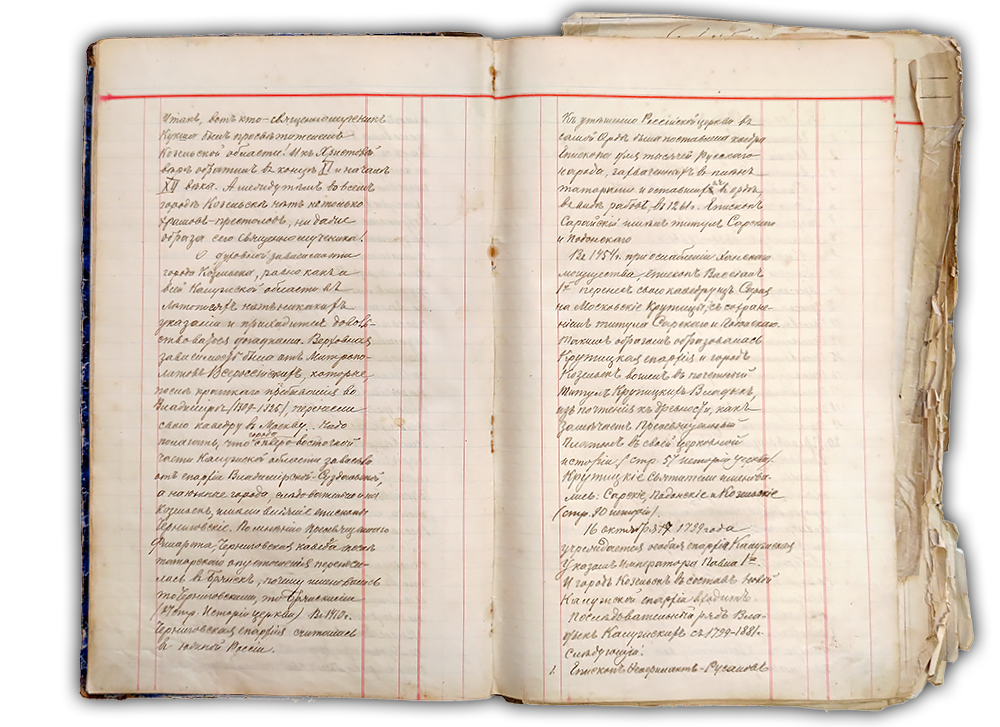 Итакъ, вотъ кто - священномученикъ
Кукша былъ просвѣтителемъ
Козельской области! И къ Христовой
вѣрѣ обратилъ въ концѣ XI и началѣ
XII вѣка. А между тѣмъ во всемъ
городѣ Козельскѣ нѣтъ не только
храмовъ-престоловъ, ни даже
образа сего Священномученика!
О духовной зависимости
города Козельска, равно какъ и
всей Калужской области въ
лѣтописяхъ нѣтъ никакихъ
указаній и приходится доволь-
ствоваться догадками. Верховная
зависимость была отъ Митропо-
литовъ Всероссійскихъ, которые,
послѣ краткаго пребыванія во
Владимірѣ (1299-1325), перенесли
свою кафедру въ Москву. Надо
полагать, что города сѣверо-восточной
части Калужской области зависѣли
отъ епархіи Владимірской-Суздальской,
а на южные города, слѣдовательно и на
Козельскъ, имѣли вліяніе епископы
Черниговскіе. По мнѣнію Преосвященнаго
Филарета, Черниговская кафедра послѣ
татарскаго опустошенія переноси-
лась въ Брянскъ, почему именовались
то Черниговскими, то Брянскими
стр. Исторіи церкви) Въ 1410 г.
Черниговская епархія считалась
въ южной Россіи.
Къ утѣшенію Россійской церкви въ
самой Ордѣ была поставлена кафедра
Епископа для тысячей Русскаго
народа, захваченныхъ въ плѣнъ
татарами и оставшихся въ ордѣ,
въ видѣ рабовъ, въ 1261 г. Епископъ
Сарайскій имѣлъ титулъ Сарскаго
и Подонскаго
Въ 1454 г. при ослабленіи Ханскаго
могущества, Епископъ Вассіанъ
1й перенесъ свою кафедру изъ Сарая
на Московскіе Крутицы, съ сохране-
ніемъ титула Сарскаго и Подонскаго.
Такимъ образомъ образовалась
Крутицкая епархія и городъ
Козельскъ вошелъ въ почетный
титулъ Крутицкихъ Владыкъ,
изъ почтенія къ древности, какъ
замѣчаетъ Преосвященный
Платонъ въ своей церковной
исторіи (стр. 57 исторіи церкви).
Крутицкіе Святители именова-
лись: Сарскіе, Подонскіе и Козельскіе
(стр. 90 исторіи).
16 октября 1799 года
учреждается особая епархія Калужская
Указомъ Императора Павла 1го
И городъ Козельскъ въ составъ новой
Калужской епархіи входитъ.
Послѣдовательный рядъ Вла-
дыкъ Калужскихъ съ 1799-1881 г.
Слѣдующій:
1. Епископъ Ѳеофилактъ - Русановъ